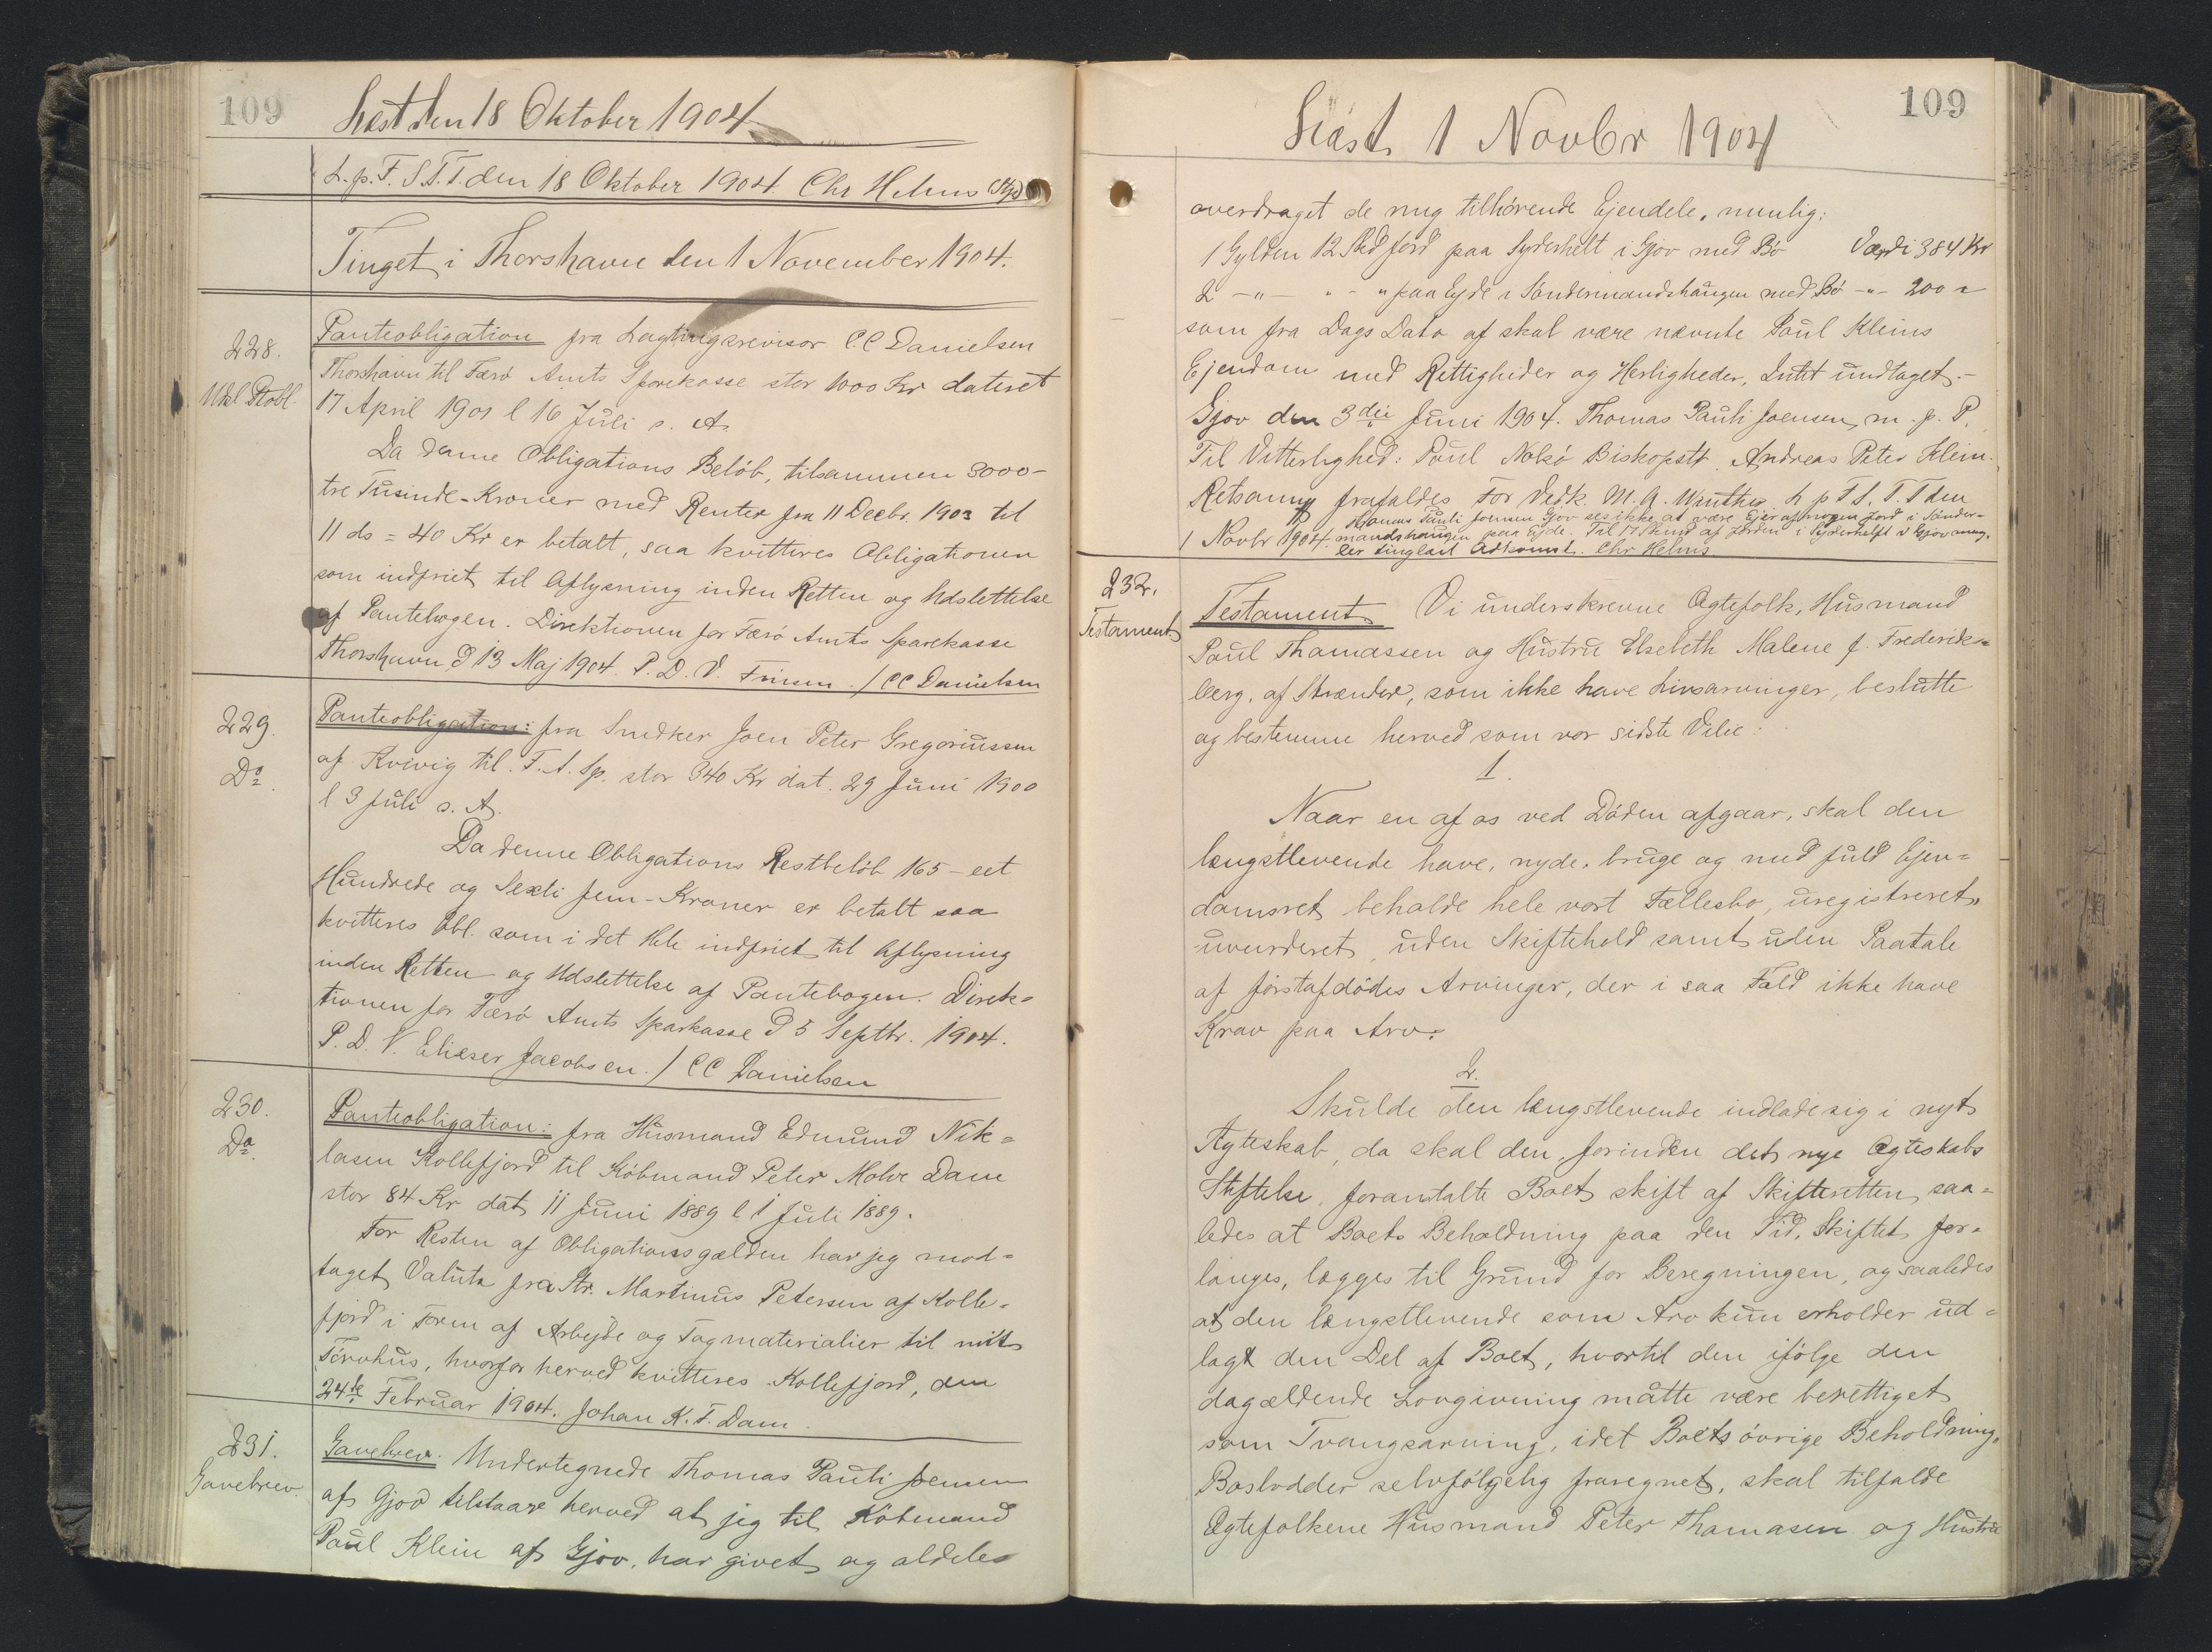 109
Læst den 18 Oktober 1904
L. p. F. S. T. T. den 18 Oktober 1904. Chr Helms
Tinget i Thorshavn den 1 November 1904.
228.
Udsl Ptobl.
Panteobligation fra Lagtingsrevisor C.C Danielsen
Thorshavn til Færø Amts Sparekasse stor 1000 Kr dateret
17 April 1901 l 16 Juli s. A.
Da denne Obligations Beløb, tilsammen 3000-
tre Tusinde-Kroner med Renter fra 11 Decbr. 1903 til
11 ds = 40 Kr er betalt, saa kvitteres Obligationen
som indfriet til Aflysning inden Retten og Udslettelse
af Pantebogen. Direktionen for Færø Amts Sparekasse
Thorshavn d 13 Maj 1904. P. D. V. Finsen. / CC Danielsen
229.
Do.
Panteobligation: fra Snedker Joen Peter Gregoriussen
af Kvivig til F. A. Sp. stor 340 Kr dat. 29 Juni 1900
l 3 Juli s. A.
Da denne Obligations Restbeløb 165 - eet
Hundrede og Sexti fem - Kroner er betalt saa
kvitteres Obl. som i det Hele indfriet til Aflysning
inden Retten og Udslettelse af Pantebogen. Direk=
tionen for Færø Amts Sparkasse d 5 Septbr. 1904.
P. D. V. Elieser Jacobsen. / CC Danielsen
230.
Do.
Panteobligation: fra Husmand Edmund Nik=
lasen Kollefjord til Købmand Peter Mohr Dam
stor 84 Kr dat 11 Juni 1889 l 1 Juli 1889.
For Resten af Obligationsgælden har jeg mod=
taget Valuta fra Hr. Martinus Petersen af Kolle=
fjord i Form af Arbejde og Tagmaterialier til mit
Tørvhus, hvorfor herved kvitteres. Kollefjord, den
24de Februar 1904. Johan K. F. Dam.
231.
Gavebrev.
Gavebrev. Undertegnede Thomas Pauli Joensen
af Gjov tilstaar herved at jeg til Købmand
Poul Klein af Gjov, har givet og aldeles
109
Læst 1 Novbr 1904
overdraget de mig tilhørende Ejendele, nemlig:
1 Gylden 12 Skd Jord paa Syderhelt i Gjov med Bø Værdi 384 Kr
2 - " - " - " paa Ejde i Søndermandshaugen med Bø - " - 200 "
som fra Dags Dato af skal være nævnte Poul Kleins
Ejendom med Rettigheder og Herligheder, Intet undtaget.-
Gjov den 3die Juni 1904. Thomas Pauli Joensen, m. p. P.
Til Vitterlighed: Poul Biskopstø. Andreas Peter Klein.
frafaldes For Vedk. M. A. Winther L p F S. T. T den
1 Novbr 1904. Thomas Pauli Joensen Gjov ses ikke at være Ejer af nogen Jord i Sønder-
mandshaugen paa Ejde. Til 17 Skind af Jorden i Syderhelft i Gjov mang-
ler tinglæst Adkomst. Chr Helms
232.
Testament
Testament Vi underskrevne Ægtefolk, Husmand
Poul Thomassen og Hustru Elsebeth Malene f. Frederiks=
berg, af Strænder, som ikke have Livsarvinger, beslutte
og bestemme herved som vor sidste Vilie:
1.
Naar en af os ved Døden afgaar, skal den
længstlevende have, nyde, bruge og med fuld Ejen=
domsret beholde hele vort Fællesbo, uregistreret,
uvurderet, uden Skiftehold samt uden Paatale
af førstafdødes Arvinger, der i saa Fald ikke have
Krav paa Arv.
2.
Skulde den længstlevende indlade sig i nyt
Ægteskab, da skal den, forinden det nye Ægteskabs
Stiftelse, foranstalte Boet skift af Skifteretten, saa=
ledes at Boets Beholdning paa den Tid, Skiftet for=
langes, lægges til Grund for Beregningen, og saaledes
at den længstlevende som Arv kun erholder ud=
lagt den Del af Boet, hvortil den ifølge den
dagældende Lovgivning måtte være berettiget
som Tvangsarving, idet Boets øvrige Beholdning,
Boslodder selvfølgelig fraregnet, skal tilfalde
Ægtefolkene Husmand Peter Thomasen og Hustru